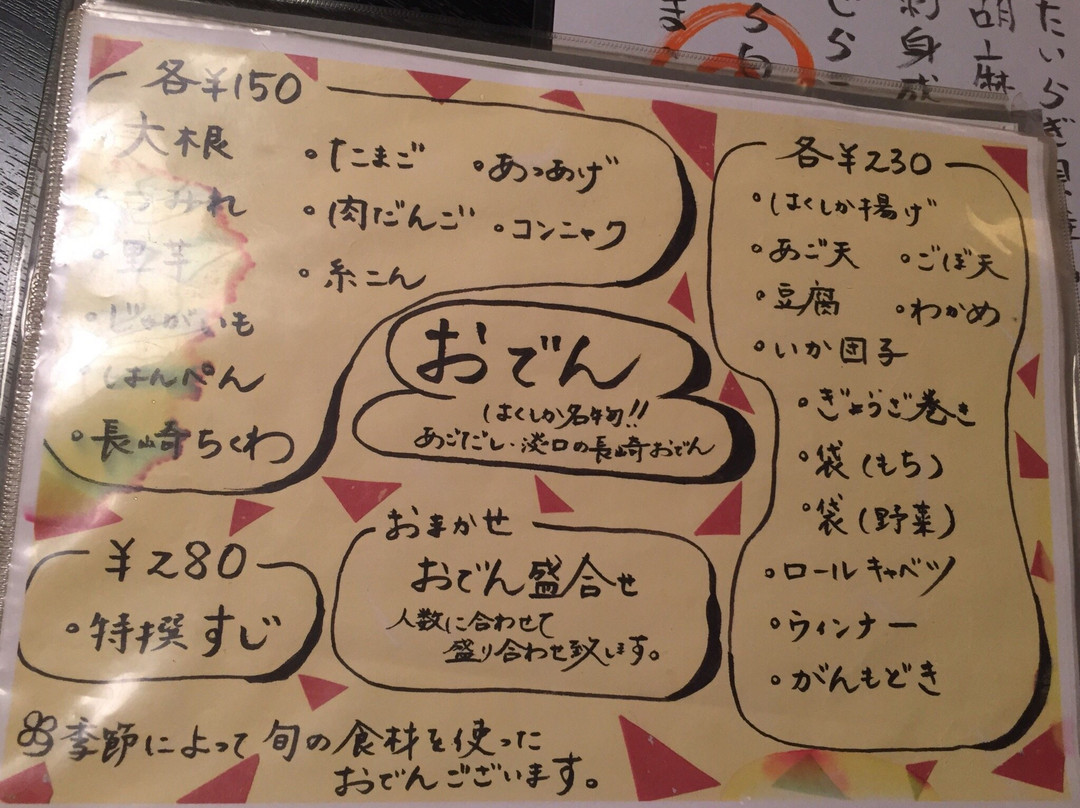 各¥150
大根
・たまご
・あつあげ
みれ
・肉だんご
・コンニャク
・里芋
・糸こん
・じゃがいも
・はんぺん
・長崎ちくわ
おでん
はくしか名物!!
あごだし・淡口の長崎おでん
各¥230
・はくしか揚げ
・あご天
・ごぼ天
・豆腐
・わかめ
・いか団子
・ぎょうざ巻き
・袋(もち)
・袋(野菜)
・ロールキャベツ
・ウィンナー
・がんもどき
¥280
・特撰すじ
おまかせ
おでん盛合せ
人数に合わせて
盛り合わせ致します。
季節によって旬の食材を使った
おでんございます。
たいらぎ
胡麻
刺身